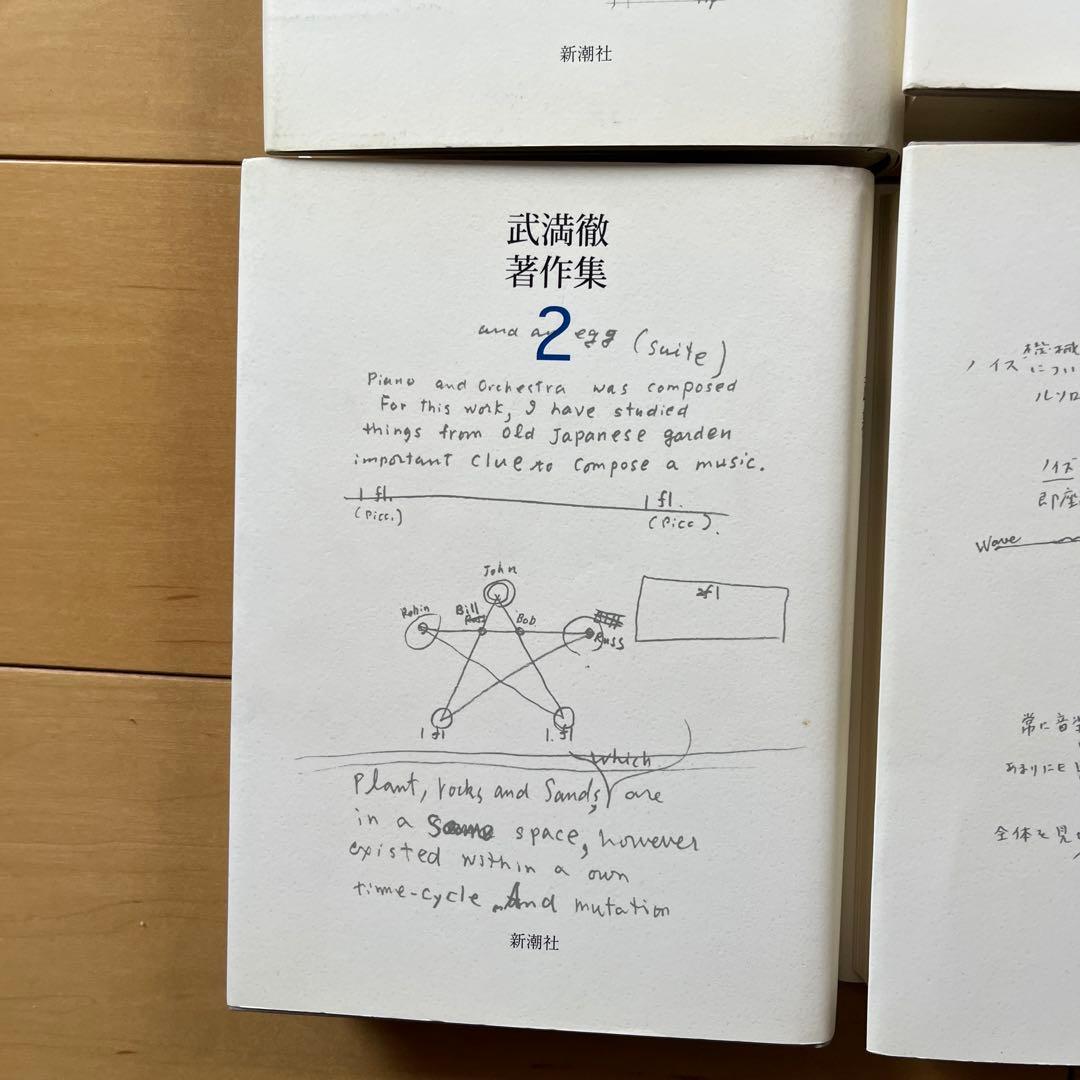 新潮社
武満徹
著作集
2
and an egg (suite)
Piano and Orchestra was composed
For this work, I have studied
things from old Japanese garden
important clue to compose a music.
1 fl. 1 fl.
(Picc.) (Picc).
John
Robin Bill Bob
Russ
2fl
1 fl 1. fl
which
Plant, rocks and Sands, are
in a Same space, however
existed within a own
time-cycle. And mutation
新潮社
機械
ノイズ につい
ルソロ
ノイズ
即座
Wave
常に音楽
あまりにも
全体を見